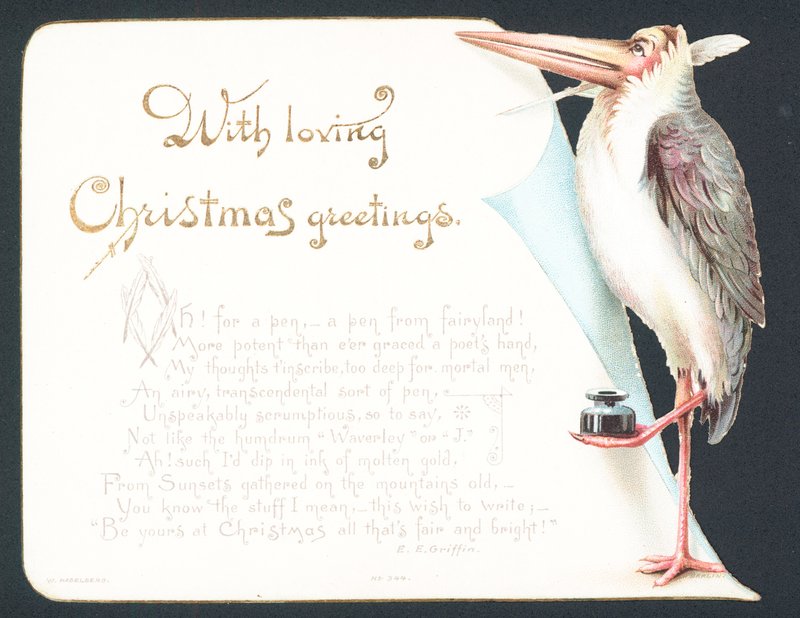 With loving
Christmas greetings.
Oh! for a pen,— a pen from fairyland!
More potent than e'er graced a poet's hand,
My thoughts t'inscribe, too deep for mortal men,
An airy, transcendental sort of pen,
Unspeakably scrumptious, so to say,
Not like the humdrum "Waverley" or "J."
Ah! such I'd dip in ink of molten gold,
From Sunsets gathered on the mountains old,—
You know the stuff I mean,—this wish to write;—
"Be yours at Christmas all that's fair and bright!"
E. E. Griffin.
W. HAGELBERG. No 344. BERLIN.